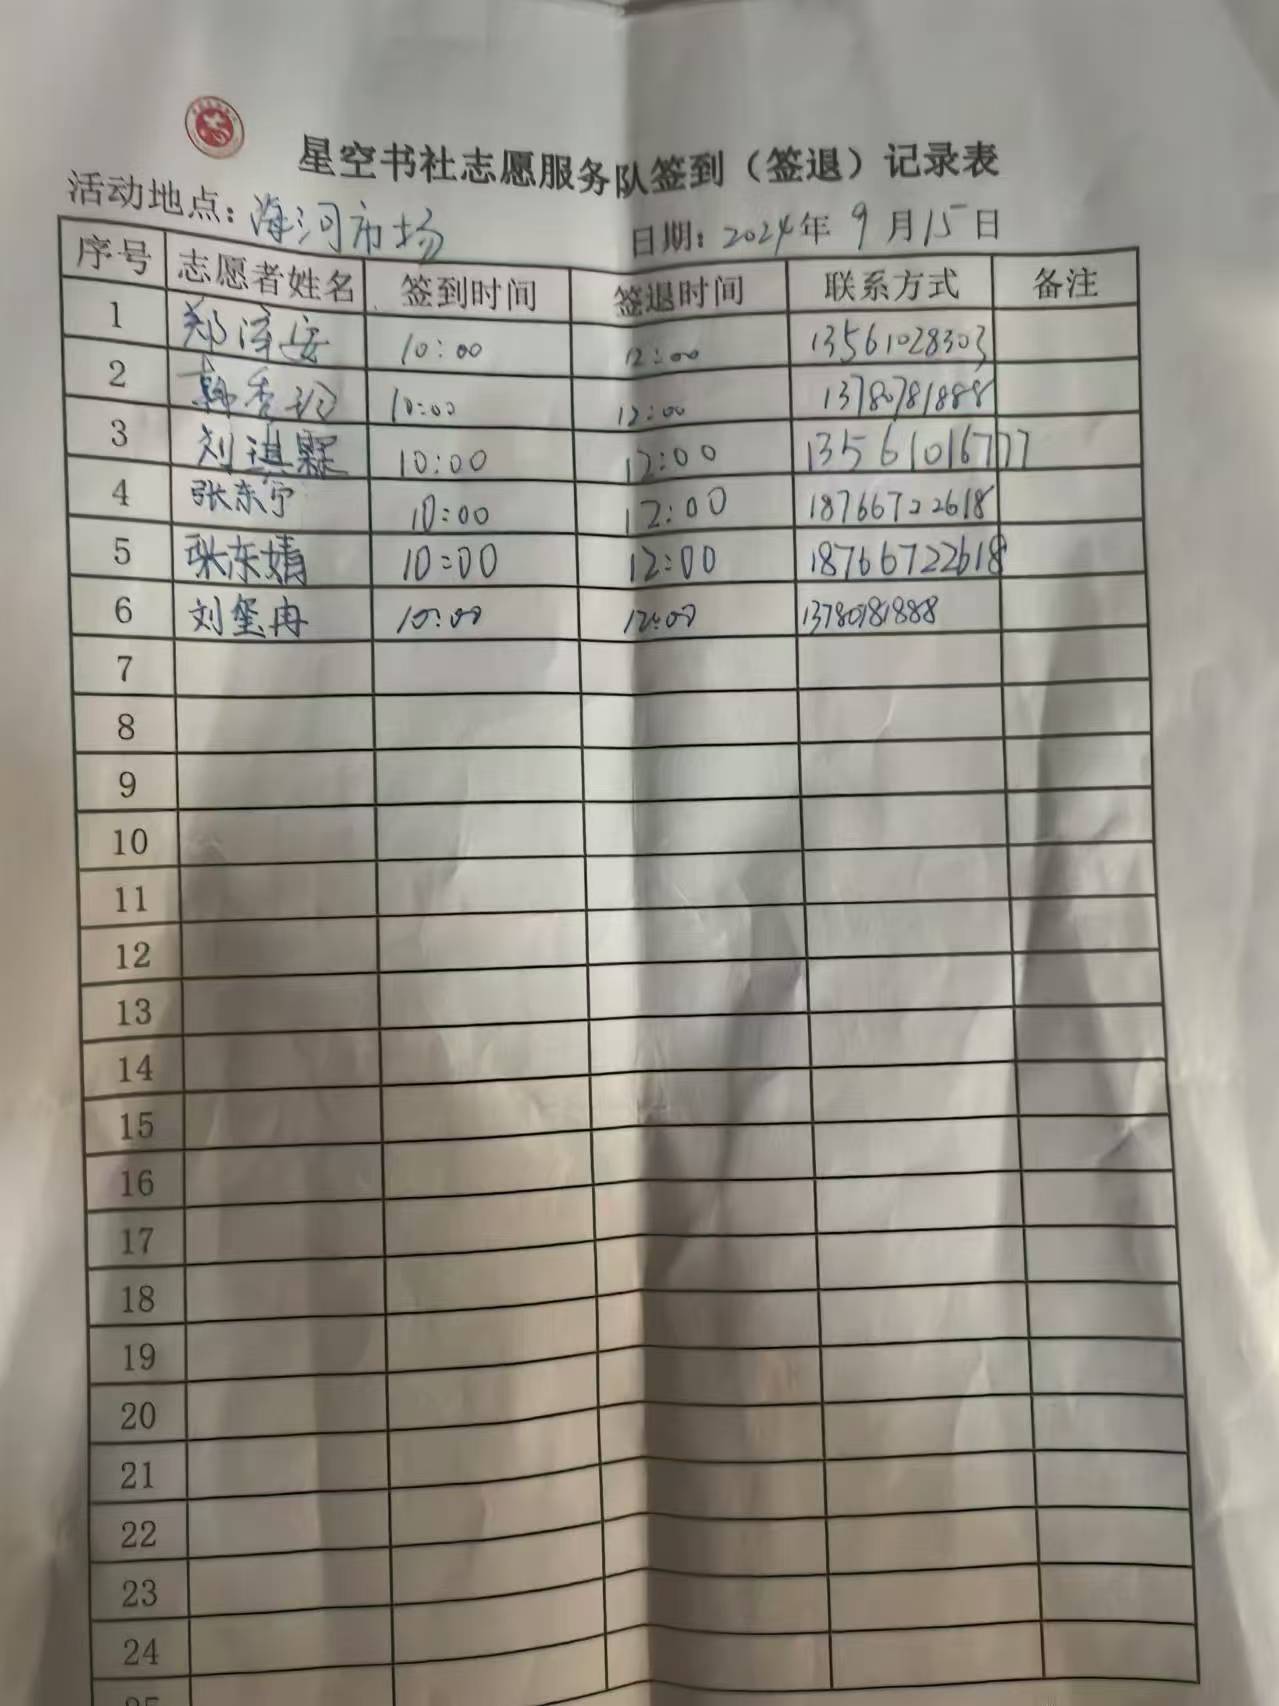 星空书社志愿服务队签到（签退）记录表
活动地点：海河市场 日期：2024年9月15日
序号 志愿者姓名 签到时间 签退时间 联系方式 备注
1 郑泽安 10:00 12:00 13561028303
2 韩秀 10:00 12:00 13780781888
3 刘琪霖 10:00 12:00 13561016777
4 张东宁 10:00 12:00 18766722618
5 张东婧 10:00 12:00 18766722618
6 刘玺冉 10:00 12:00 13780781888
7
8
9
10
11
12
13
14
15
16
17
18
19
20
21
22
23
24
25